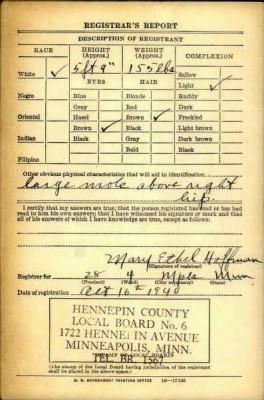 REGISTRAR'S REPORT
DESCRIPTION OF REGISTRANT
RACE HEIGHT (Approx.) WEIGHT (Approx.) COMPLEXION
White ✓ 5 ft 9" 155 lbs Sallow
EYES HAIR Light ✓
Negro Blue Blonde Ruddy
Gray Red Dark
Oriental Hazel Brown ✓ Freckled
Brown ✓ Black Light brown
Indian Black Gray Dark brown
Bald Black
Filipino
Other obvious physical characteristics that will aid in identification
large mole above right
hip.
I certify that my answers are true; that the person registered has read or has had
read to him his own answers; that I have witnessed his signature or mark and that
all of his answers of which I have knowledge are true, except as follows:
Mary Ethel Hoffman
(Signature of registrar)
Registrar for 28 4 Mpls Minn
(Precinct) (Ward) (City or county) (State)
Date of registration Oct 16th 1940
HENNEPIN COUNTY
LOCAL BOARD No. 6
1722 HENNEPIN AVENUE
MINNEAPOLIS, MINN.
TEL. BR. 1567
(The stamp of the Local Board having jurisdiction of the registrant
shall be placed in the above space.)
U. S. GOVERNMENT PRINTING OFFICE 16—17105